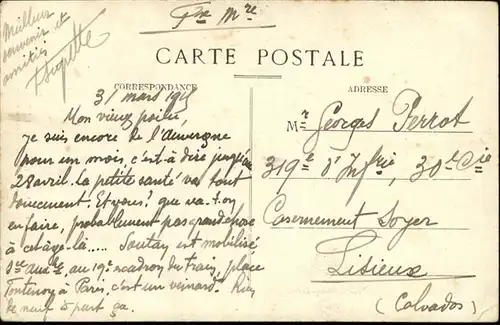 Pce Mre
Meilleur
souvenir et
amitiés
Huguette
CARTE POSTALE
CORRESPONDANCE
ADRESSE
31 mars 1915
Mon vieux poilu,
je suis encore de l'auvergne
pour un mois, c'est à dire jusqu'au
28 avril. La petite santé va tout
doucement. Et vous? que va-t.on
en faire, probablement pas grand chose
à cet âge-là..... Soutay est mobilisé
au 19e escadron du train, place
Fontenoy à Paris, c'est un veinard. Rien
de neuf à part ça.
Mr Georges Perrot
319e d'Infrie, 30e Cie
Casernement Soyer
Lisieux
(Calvados)